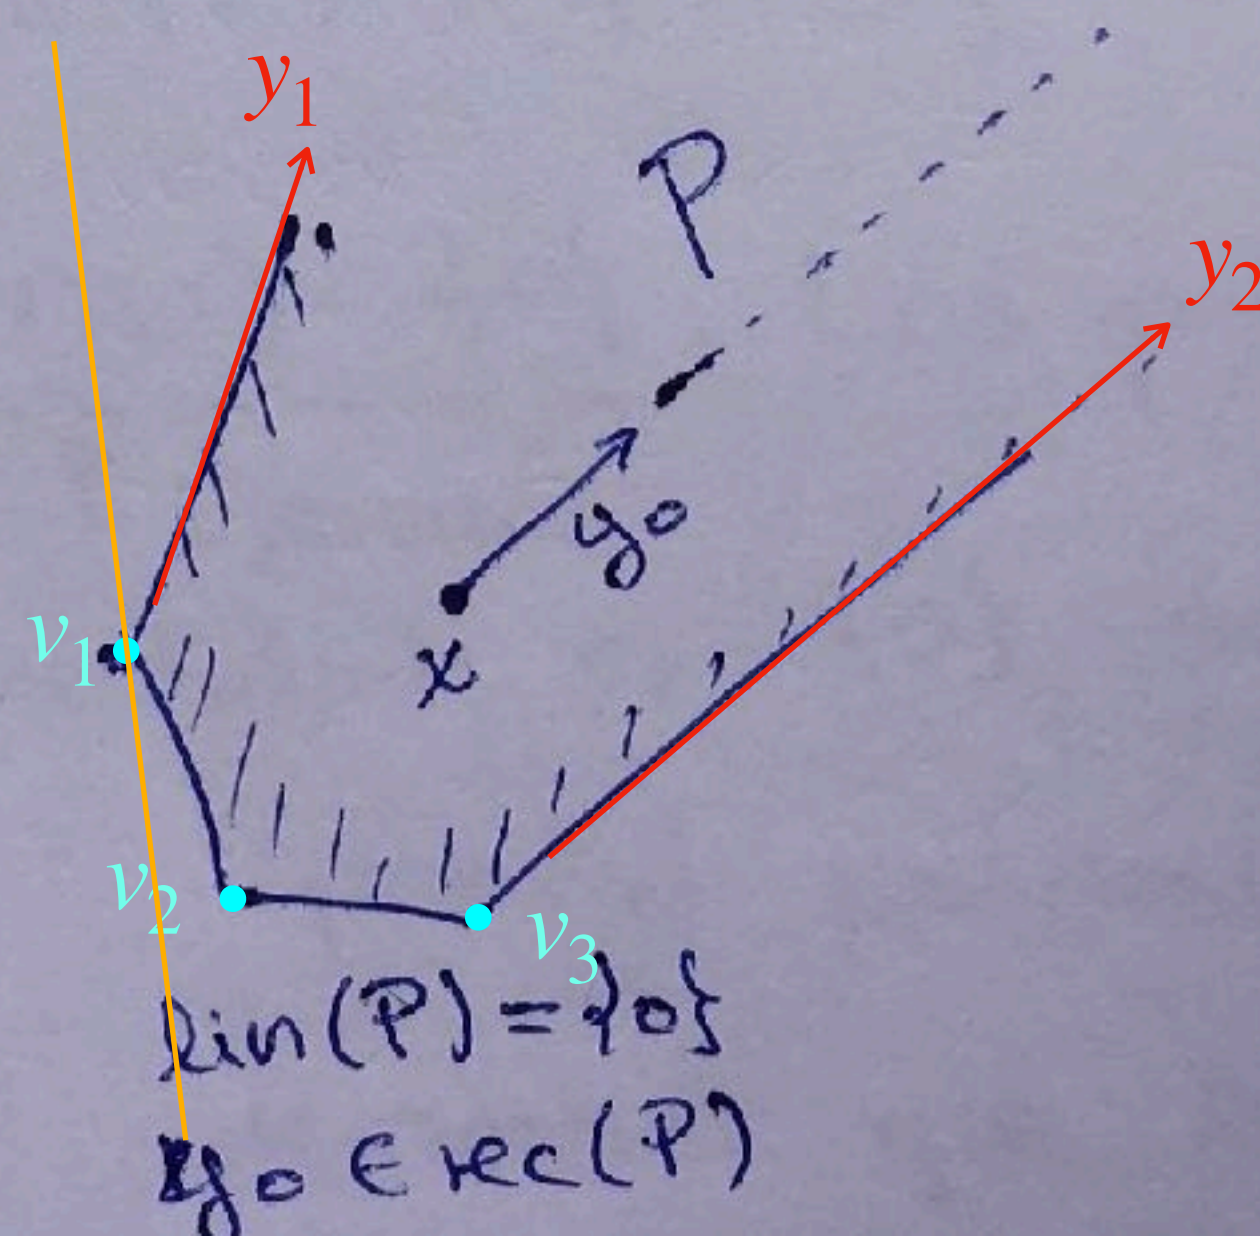 y₁
P
y₂
y₀
x
v₁
v₂
v₃
lin(P) = {0}
y₀ ∈ rec(P)